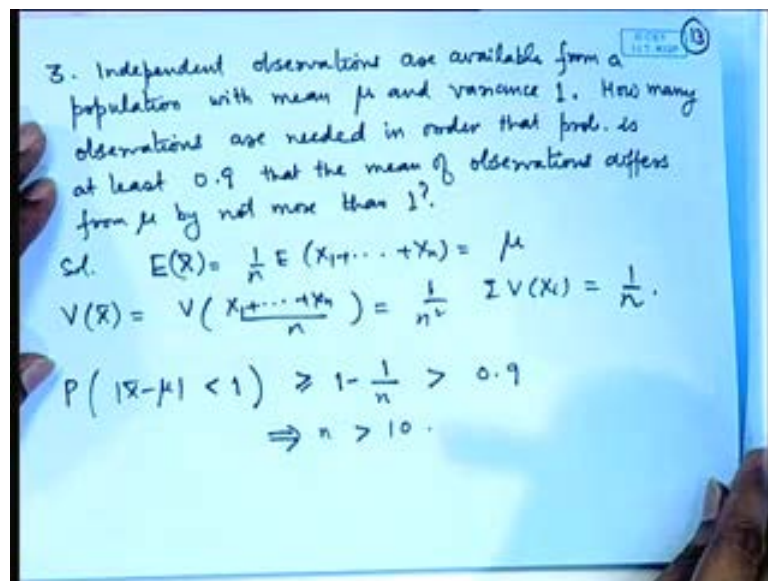 13
3. Independent observations are available from a
population with mean μ and variance 1. How many
observations are needed in order that prob. is
at least 0.9 that the mean of observations differs
from μ by not more than 1?.
Sol. E(X̄) = 1/n E (X₁+ ... +Xₙ) = μ
V(X̄) = V( (X₁+ ... +Xₙ)/n ) = 1/n² Σ V(Xᵢ) = 1/n.
P( |X̄-μ| < 1 ) ≥ 1 - 1/n > 0.9
⇒ n > 10.